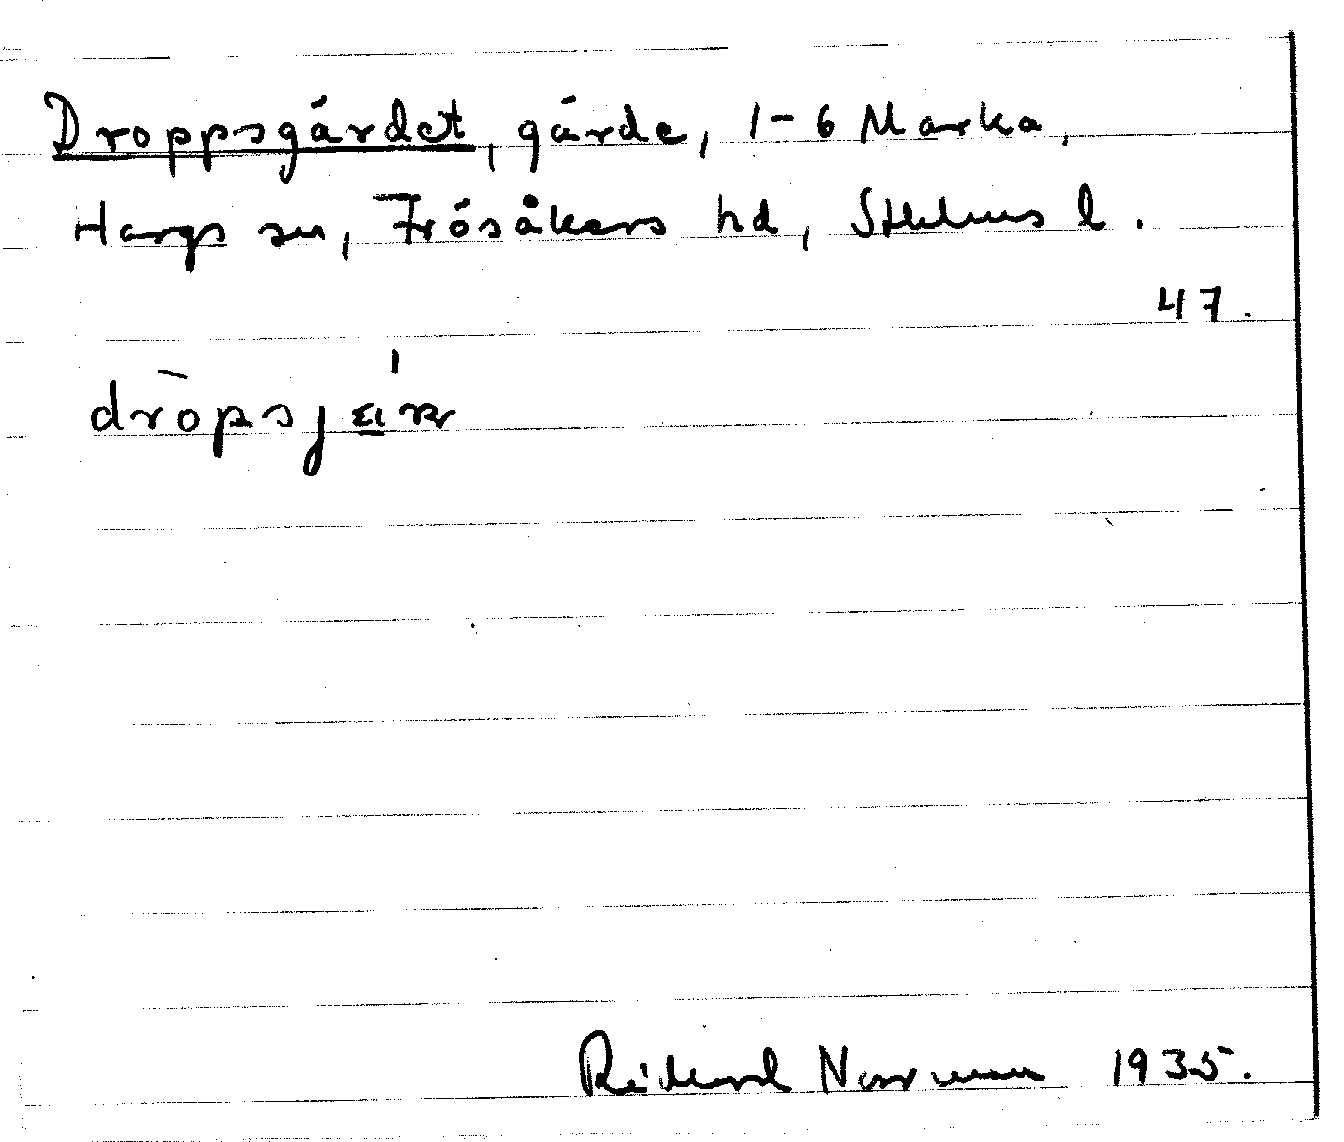 Droppsgärdet, gärde, 1-6 Marka,
Hargs sn, Frösåkers hd, Sthlms l.
47.
Rickard Norrman 1935.